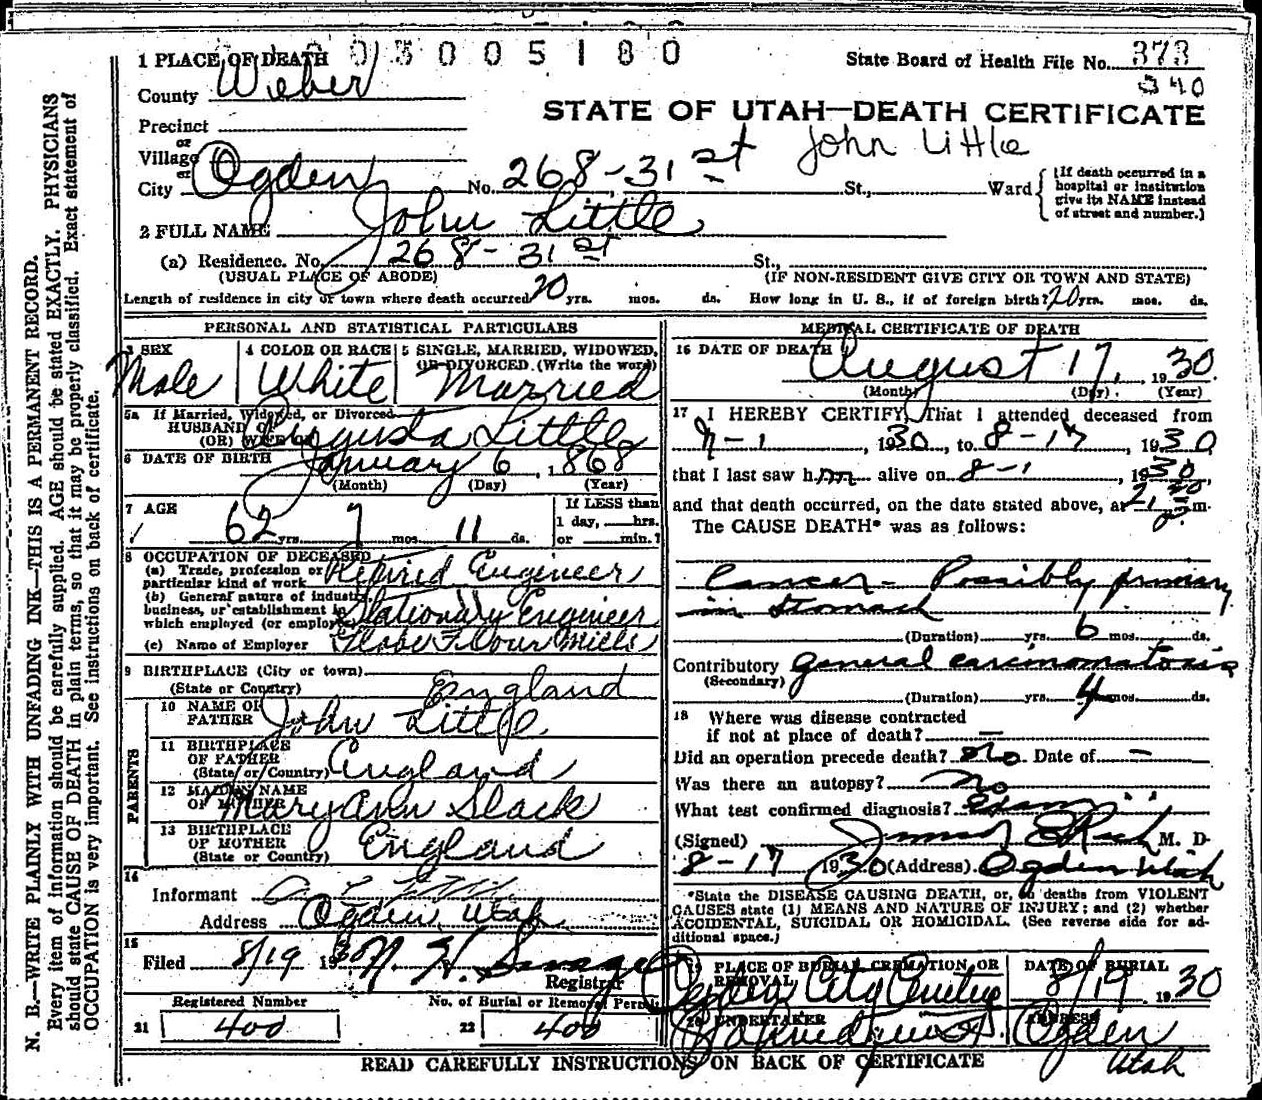 N. B.—WRITE PLAINLY WITH UNFADING INK—THIS IS A PERMANENT RECORD.
Every item of information should be carefully supplied. AGE should be stated EXACTLY. PHYSICIANS
should state CAUSE OF DEATH in plain terms, so that it may be properly classified. Exact statement of
OCCUPATION is very important. See instructions on back of certificate.
1 PLACE OF DEATH 03005180
State Board of Health File No. 373
340
County Weber
STATE OF UTAH—DEATH CERTIFICATE
Precinct
or
Village
John Little
or
City Ogden No. 268-31st St., Ward
(If death occurred in a
hospital or institution
give its NAME instead
of street and number.)
2 FULL NAME John Little
(a) Residence. No. 268-31st St.,
(USUAL PLACE OF ABODE) (IF NON-RESIDENT GIVE CITY OR TOWN AND STATE)
Length of residence in city or town where death occurred 20 yrs. mos. ds. How long in U. S., if of foreign birth? 20 yrs. mos. ds.
PERSONAL AND STATISTICAL PARTICULARS
3 SEX
Male
4 COLOR OR RACE
White
5 SINGLE, MARRIED, WIDOWED,
OR DIVORCED. (Write the word)
Married
5a If Married, Widowed, or Divorced
HUSBAND OF
(OR) WIFE OF Augusta Little
6 DATE OF BIRTH January 6, 1868
(Month) (Day) (Year)
7 AGE
62 yrs. 7 mos. 11 ds.
If LESS than
1 day, hrs.
or min.?
8 OCCUPATION OF DECEASED
(a) Trade, profession or
particular kind of work Retired Engineer
(b) General nature of industry,
business, or establishment in
which employed (or employer) Stationary Engineer
(c) Name of Employer Globe Flour Mills
9 BIRTHPLACE (City or town)
(State or Country) England
PARENTS
10 NAME OF
FATHER John Little
11 BIRTHPLACE
OF FATHER
(State or Country) England
12 MAIDEN NAME
OF MOTHER Mary Ann Slack
13 BIRTHPLACE
OF MOTHER
(State or Country) England
14
Informant
Address Ogden, Utah
15
Filed 8/19 1930
Registrar
Registered Number
21 400
No. of Burial or Removal Permit
22 400
MEDICAL CERTIFICATE OF DEATH
16 DATE OF DEATH August 17, 1930
(Month) (Day) (Year)
17 I HEREBY CERTIFY, That I attended deceased from
1930, to 8-17, 1930
that I last saw him alive on 8-1, 1930,
and that death occurred, on the date stated above, at m.
The CAUSE DEATH* was as follows:
Cancer - Possibly primary
in stomach
(Duration) yrs. 6 mos. ds.
Contributory general carcinomatosis
(Secondary)
(Duration) yrs. 4 mos. ds.
18 Where was disease contracted
if not at place of death? —
Did an operation precede death? No Date of —
Was there an autopsy? no
What test confirmed diagnosis?
(Signed) Rich M. D.
8-17 1930 (Address) Ogden Utah
*State the DISEASE CAUSING DEATH, or, in deaths from VIOLENT
CAUSES state (1) MEANS AND NATURE OF INJURY; and (2) whether
ACCIDENTAL, SUICIDAL OR HOMICIDAL. (See reverse side for ad-
ditional space.)
19 PLACE OF BURIAL CREMATION, OR
REMOVAL
Ogden City
DATE OF BURIAL
8/19 1930
20 UNDERTAKER
ADDRESS
Ogden
Utah
READ CAREFULLY INSTRUCTIONS ON BACK OF CERTIFICATE